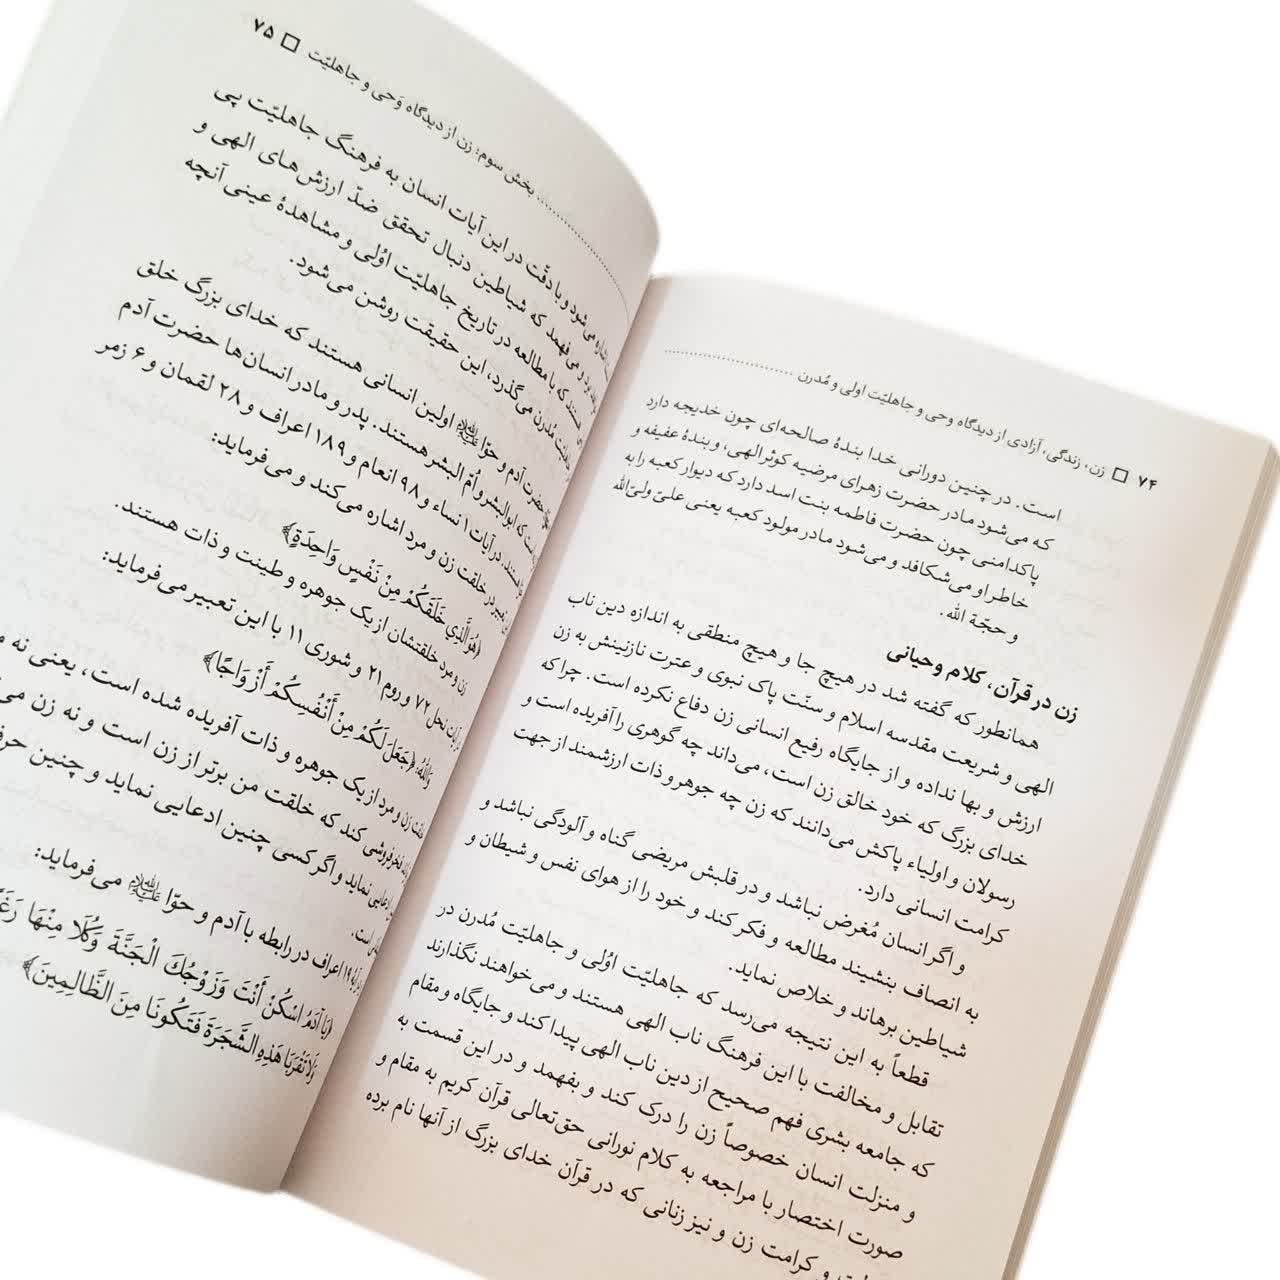 ۷۴ □ زن، زندگی، آزادی از دیدگاه وحی و جاهلیّت اولی و مُدرن
است. در چنین دورانی خدا بندۀ صالحه‌ای چون خدیجه دارد
که می‌شود مادر حضرت زهرای مرضیه کوثر الهی، و بندۀ عفیفه و
پاکدامنی چون حضرت فاطمه بنت اسد دارد که دیوار کعبه را به
خاطر او می‌شکافد و می‌شود مادر مولود کعبه یعنی علیّ ولیّ الله
و حجّة الله.
زن در قرآن، کلام وحیانی
همانطور که گفته شد در هیچ جا و هیچ منطقی به اندازه دین ناب
الهی و شریعت مقدسه اسلام و سنّت پاک نبوی و عترت نازنینش به زن
ارزش و بها نداده و از جایگاه رفیع انسانی زن دفاع نکرده است. چرا که
خدای بزرگ که خود خالق زن است، می‌داند چه گوهری را آفریده است و
رسولان و اولیاء پاکش می‌دانند که زن چه جوهر و ذات ارزشمند از جهت
کرامت انسانی دارد.
و اگر انسان مُغرض نباشد و در قلبش مریضی گناه و آلودگی نباشد و
به انصاف بنشیند مطالعه و فکر کند و خود را از هوای نفس و شیطان و
شیاطین برهاند و خلاص نماید.
قطعاً به این نتیجه می‌رسد که جاهلیّت اوُلی و جاهلیّت مُدرن در
تقابل و مخالفت با این فرهنگ ناب الهی هستند و می‌خواهند نگذارند
که جامعه بشری فهم صحیح از دین ناب الهی پیدا کند و جایگاه و مقام
و منزلت انسان خصوصاً زن را درک کند و بفهمد و در این قسمت به
صورت اختصار با مراجعه به کلام نورانی حق‌تعالی قرآن کریم به مقام و
و کرامت زن و نیز زنانی که در قرآن خدای بزرگ از آنها نام برده
بخش سوم: زن از دیدگاه وَحی و جاهلیّت □ ۷۵
می‌شود و با دقّت در این آیات انسان به فرهنگ جاهلیّت پی
و می‌فهمد که شیاطین دنبال تحقق ضدّ ارزش‌های الهی و
هستند که با مطالعه در تاریخ جاهلیّت اوُلی و مشاهدۀ عینی آنچه
مُدرن می‌گذرد، این حقیقت روشن می‌شود.
حضرت آدم و حوّا اولین انسانی هستند که خدای بزرگ خلق
است که ابوالبشر و اُمّ البشر هستند. پدر و مادر انسان‌ها حضرت آدم
هستند. در آیات ۱ نساء و ۹۸ انعام و ۱۸۹ اعراف و ۲۸ لقمان و ۶ زمر
در خلقت زن و مرد اشاره می‌کند و می‌فرماید:
﴿هُوَ الَّذِي خَلَقَكُمْ مِنْ نَفْسٍ وَاحِدَةٍ﴾
زن و مرد خلقتشان از یک جوهره و طینت و ذات هستند.
آیات نحل ۷۲ و روم ۲۱ و شوری ۱۱ با این تعبیر می‌فرماید:
وَاللهُ: ﴿جَعَلَ لَكُمْ مِنْ أَنْفُسِكُمْ أَزْوَاجًا﴾
زن و مرد از یک جوهره و ذات آفریده شده است، یعنی نه
فخرفروشی کند که خلقت من برتر از زن است و نه زن
ادعایی نماید و اگر کسی چنین ادعایی نماید و چنین
است.
۱۹ اعراف در رابطه با آدم و حوّا می‌فرماید:
﴿يَا آدَمُ اسْكُنْ أَنْتَ وَزَوْجُكَ الْجَنَّةَ وَكُلَا مِنْهَا
وَلَا تَقْرَبَا هَذِهِ الشَّجَرَةَ فَتَكُونَا مِنَ الظَّالِمِينَ﴾